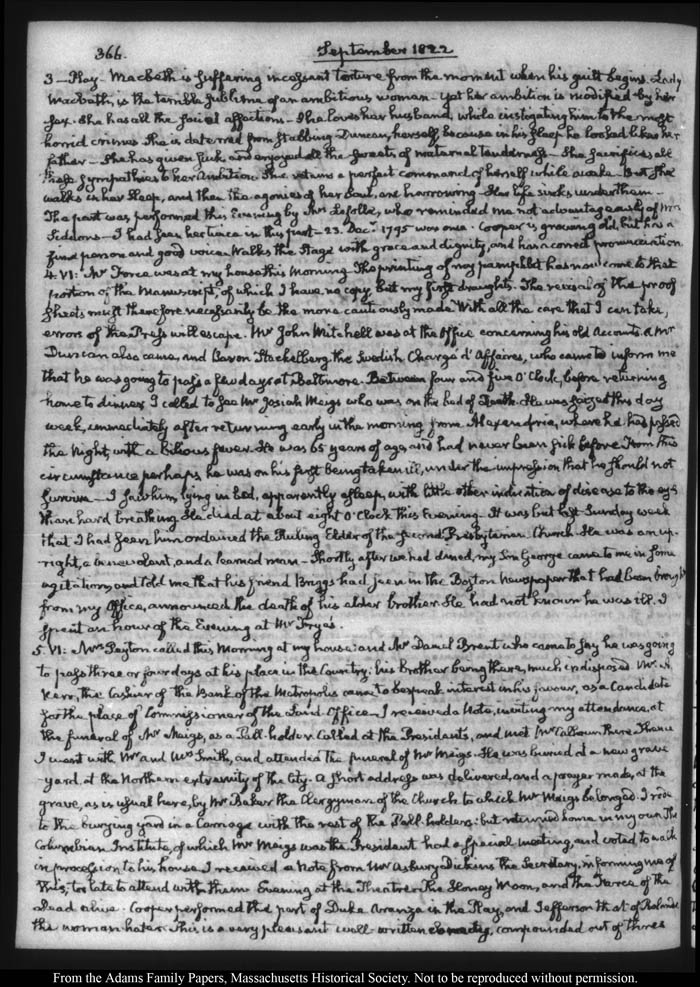 366.
September 1822
3 — Play — Macbeth is suffering incessant torture from the moment when his guilt begins. Lady
Macbeth, is the terrible sublime of an ambitious woman — yet her ambition is modified by her
sex. She has all the social affections — She loves her husband, while instigating him to the most
horrid crimes. She is deterred from stabbing Duncan, herself, because in his sleep he looked like her
father — She has given suck, and enjoyed all the sweets of maternal tenderness — She sacrifices all
these sympathies to her Ambition. She retains a perfect command of herself while awake — But she
walks in her sleep, and then the agonies of her Soul, are harrowing. Her life sinks under them —
The part was performed this Evening by Mrs. Lafolle, who reminded me not advantageously of Mrs
Siddons — I had seen her twice in this part — 23. Decr. 1795 was one. Cooper is growing old, but has a
fine person and good voice. Walks the Stage with grace and dignity, and has a correct pronunciation.
4. VI: Mr Force was at my house this Morning. The printing of my pamphlet has now come to that
portion of the Manuscript, of which I have no copy but my first draughts. The revisal of the proof
sheets must therefore necessarily be the more cautiously made. With all the care that I can take,
errors of the Press will escape. Mr John Mitchell was at the Office concerning his old Accounts. A Mr
Duncan also came, and Baron Stackelberg the Swedish Chargé d'Affaires, who came to inform me
that he was going to pass a few days at Baltimore. Between four and five O'Clock, before returning
home to dinner I called to see Mr Josiah Meigs who was on the bed of Death. He was seized this day
week, immediately after returning early in the morning from Alexandria, where he had passed
the Night, with a bilious fever. He was 65 years of age, and had never been sick before. From this
circumstance perhaps he was on his first being taken ill, under the impression that he should not
survive — I saw him, lying in bed, apparently asleep, with little other indication of disease to the eye
than hard breathing. He died at about eight O'Clock this Evening. It was but last Sunday week
that I had seen him ordained the Ruling Elder of the Second Presbyterian Church. He was an up-
right, a benevolent, and a learned man — Shortly after we had dined, my Son George came to me in some
agitation, and told me that his friend Briggs had seen in the Boston Newspaper that had been brought
from my Office, announced the death of his elder brother. He had not known he was ill. I
spent an hour of the Evening at Mr Frye's.
5. VI: Mrs Peyton called this Morning at my house: and Mr Daniel Brent who came to say he was going
to pass three or four days at his place in the Country; his brother being there, much indisposed. Mr. A.
Kerr, the Cashier of the Bank of the Metropolis came to bespeak interest in his favour, as a Candidate
for the place of Commissioner of the Land Office. I received a Note, inviting my attendance, at
the funeral of Mr Meigs, as a Pall-holder. Called at the Presidents, and met Mr Calhoun there. Thence
I went with Mr and Mrs Smith, and attended the funeral of Mr Meigs. He was buried at a new grave
yard, at the Northern extremity of the City. A short address was delivered, and a prayer made, at the
grave, as is usual here, by Mr Baker the Clergyman of the Church to which Mr Meigs belonged. I rode
to the burying yard in a Carriage with the rest of the Pall-holders: but returned home in my own. The
Columbian Institute, of which Mr Meigs was the President had a special meeting, and voted to walk
in procession to his house. I received a Note from Mr Asbury Dickins the Secretary, informing me of
this, too late to attend with them. Evening at the Theatre. The Honey Moon, and the Farce of the
Dead alive. Cooper performed the part of Duke Aranza in the Play, and Jefferson that of Rolando
the woman-hater. This is a very pleasant well-written comedy, compounded out of three
From the Adams Family Papers, Massachusetts Historical Society. Not to be reproduced without permission.